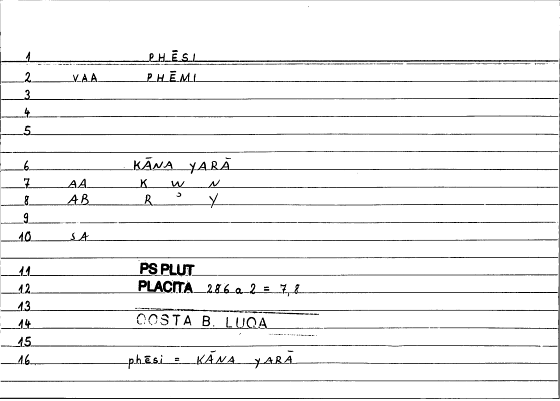 1 PHĒSI
2 VAA PHĒMI
3
4
5
6 KĀNA YARĀ
7 AA K W N
8 AB R ʾ Y
9
10 SA
11 PS PLUT
12 PLACITA 286 a 2 = 7,8
13
14 QOSTA B. LUQA
15
16 phēsi = KĀNA YARĀ